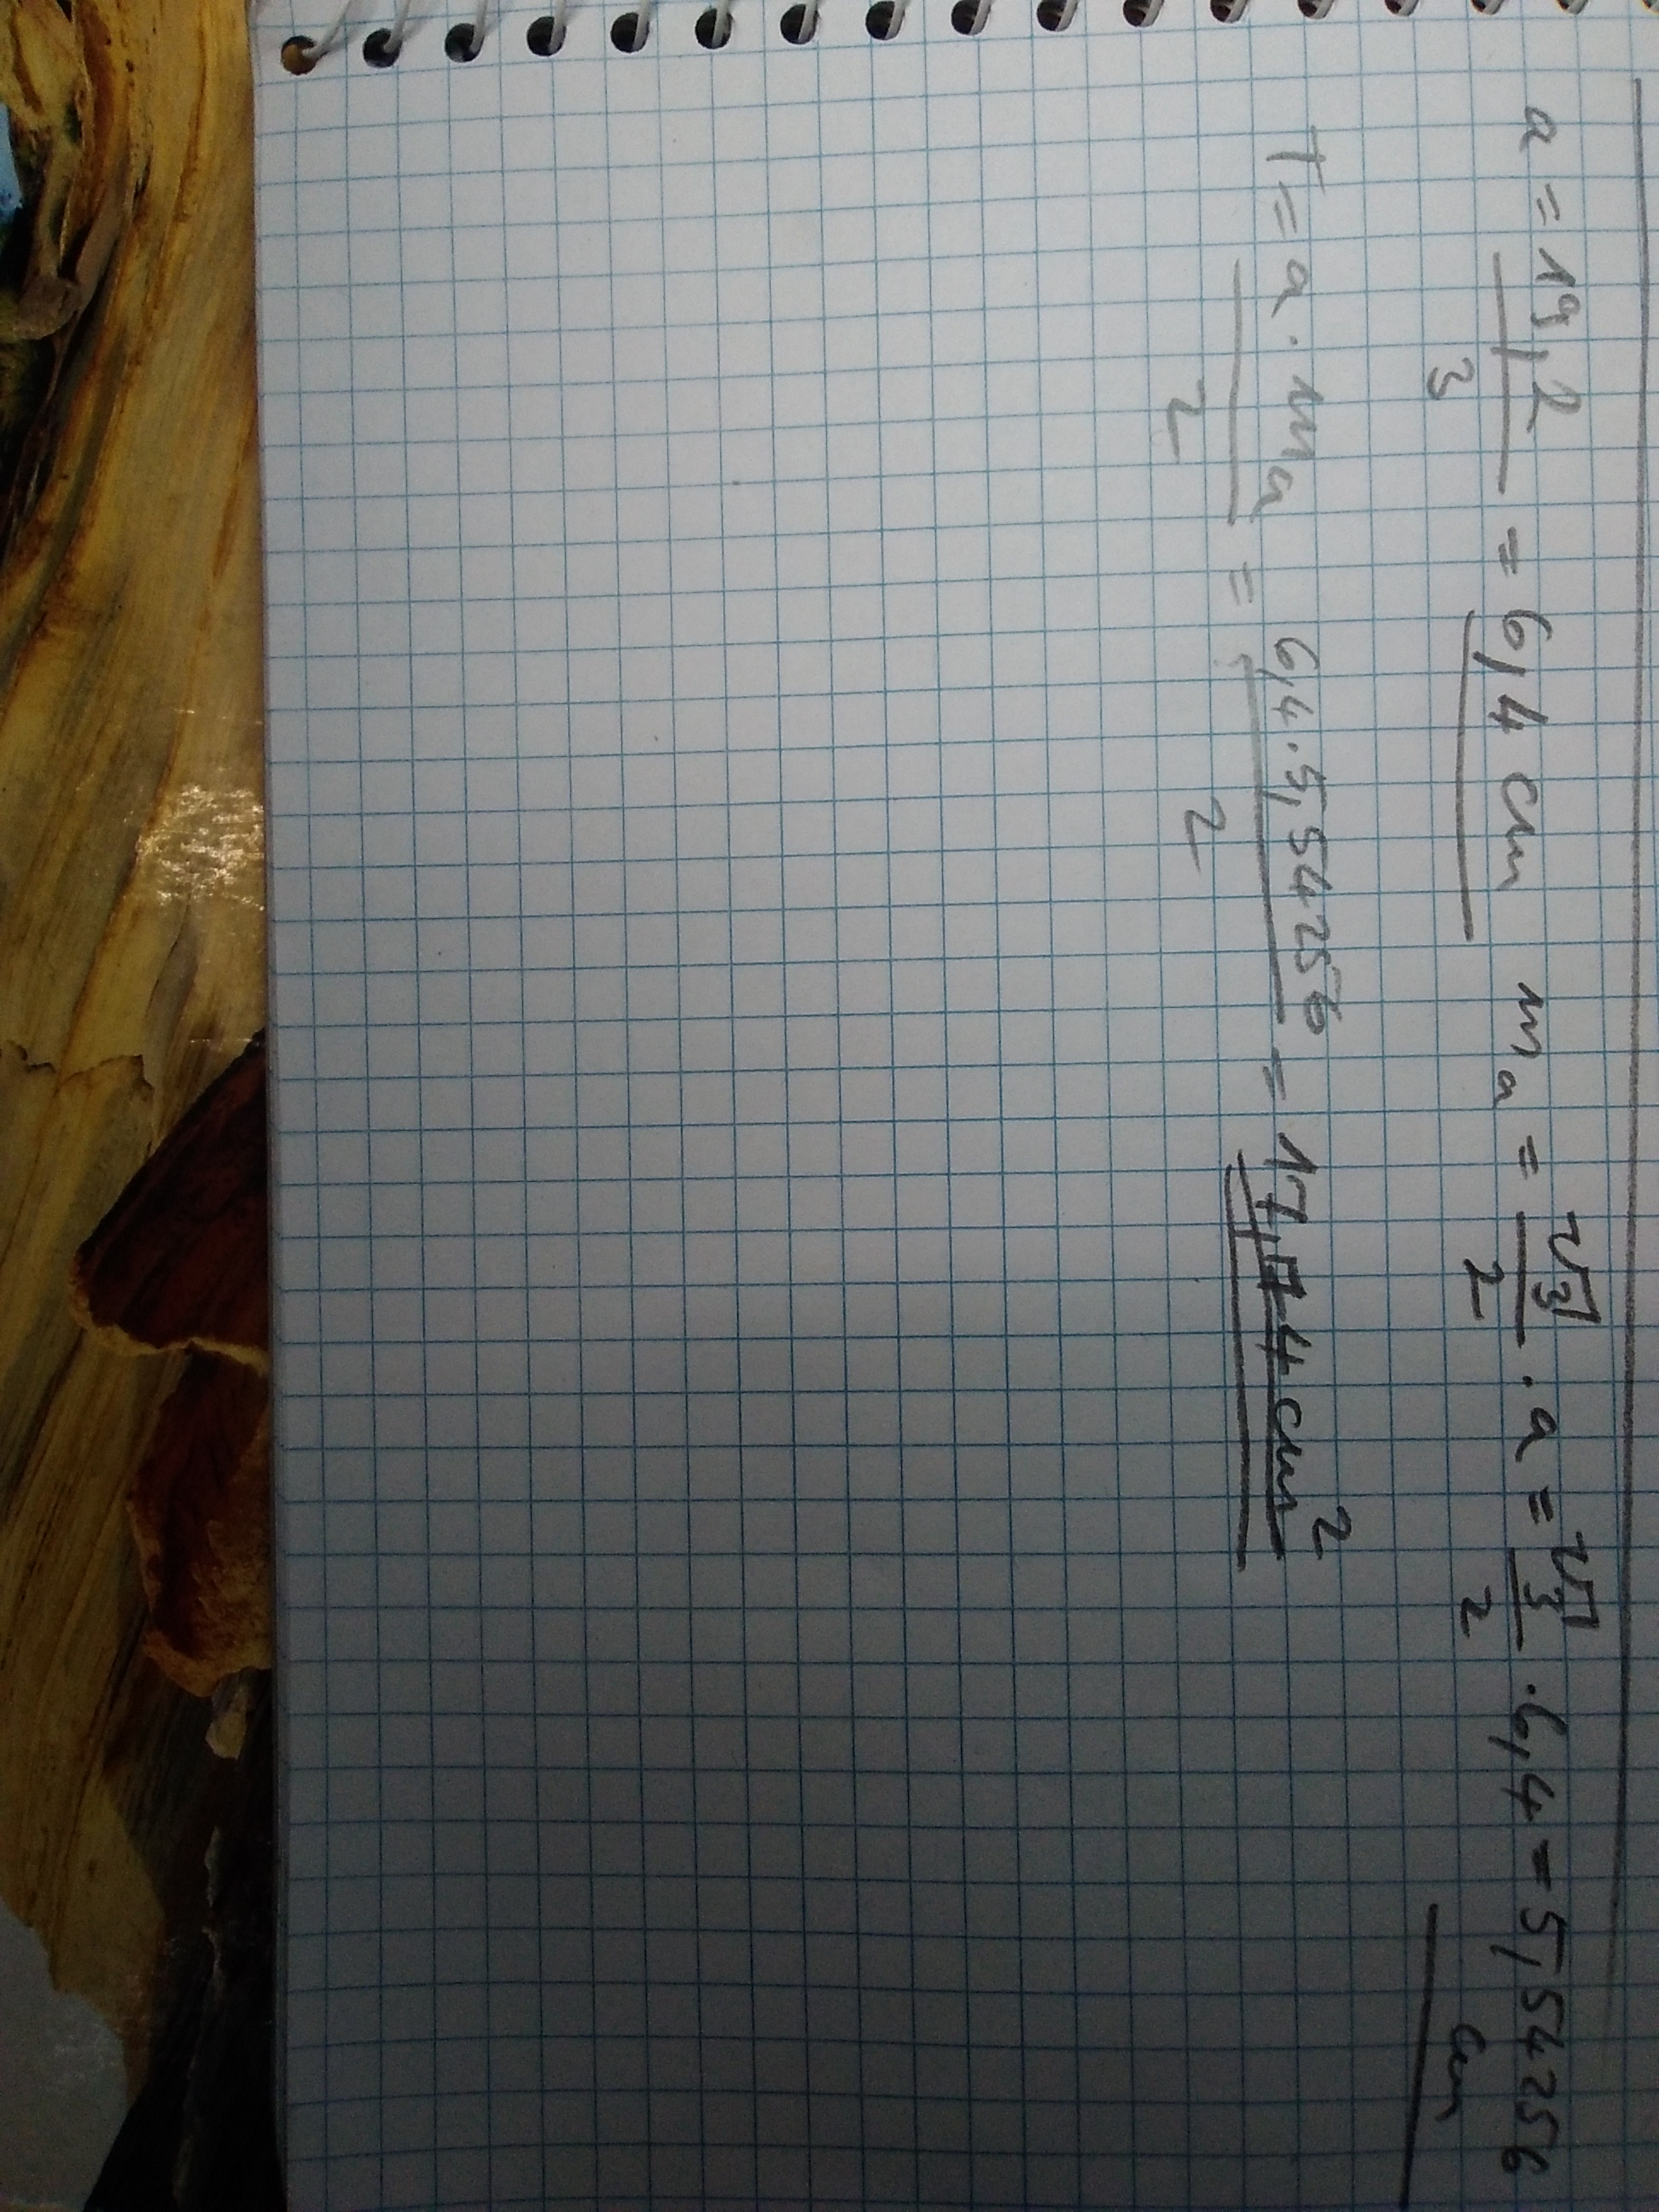 a = 19,2/3 = 6,4 cm m_a = √3/2 · a = √3/2 · 6,4 = 5,54256 cm
T = a · m_a/2 = 6,4 · 5,54256/2 = 17,74 cm²